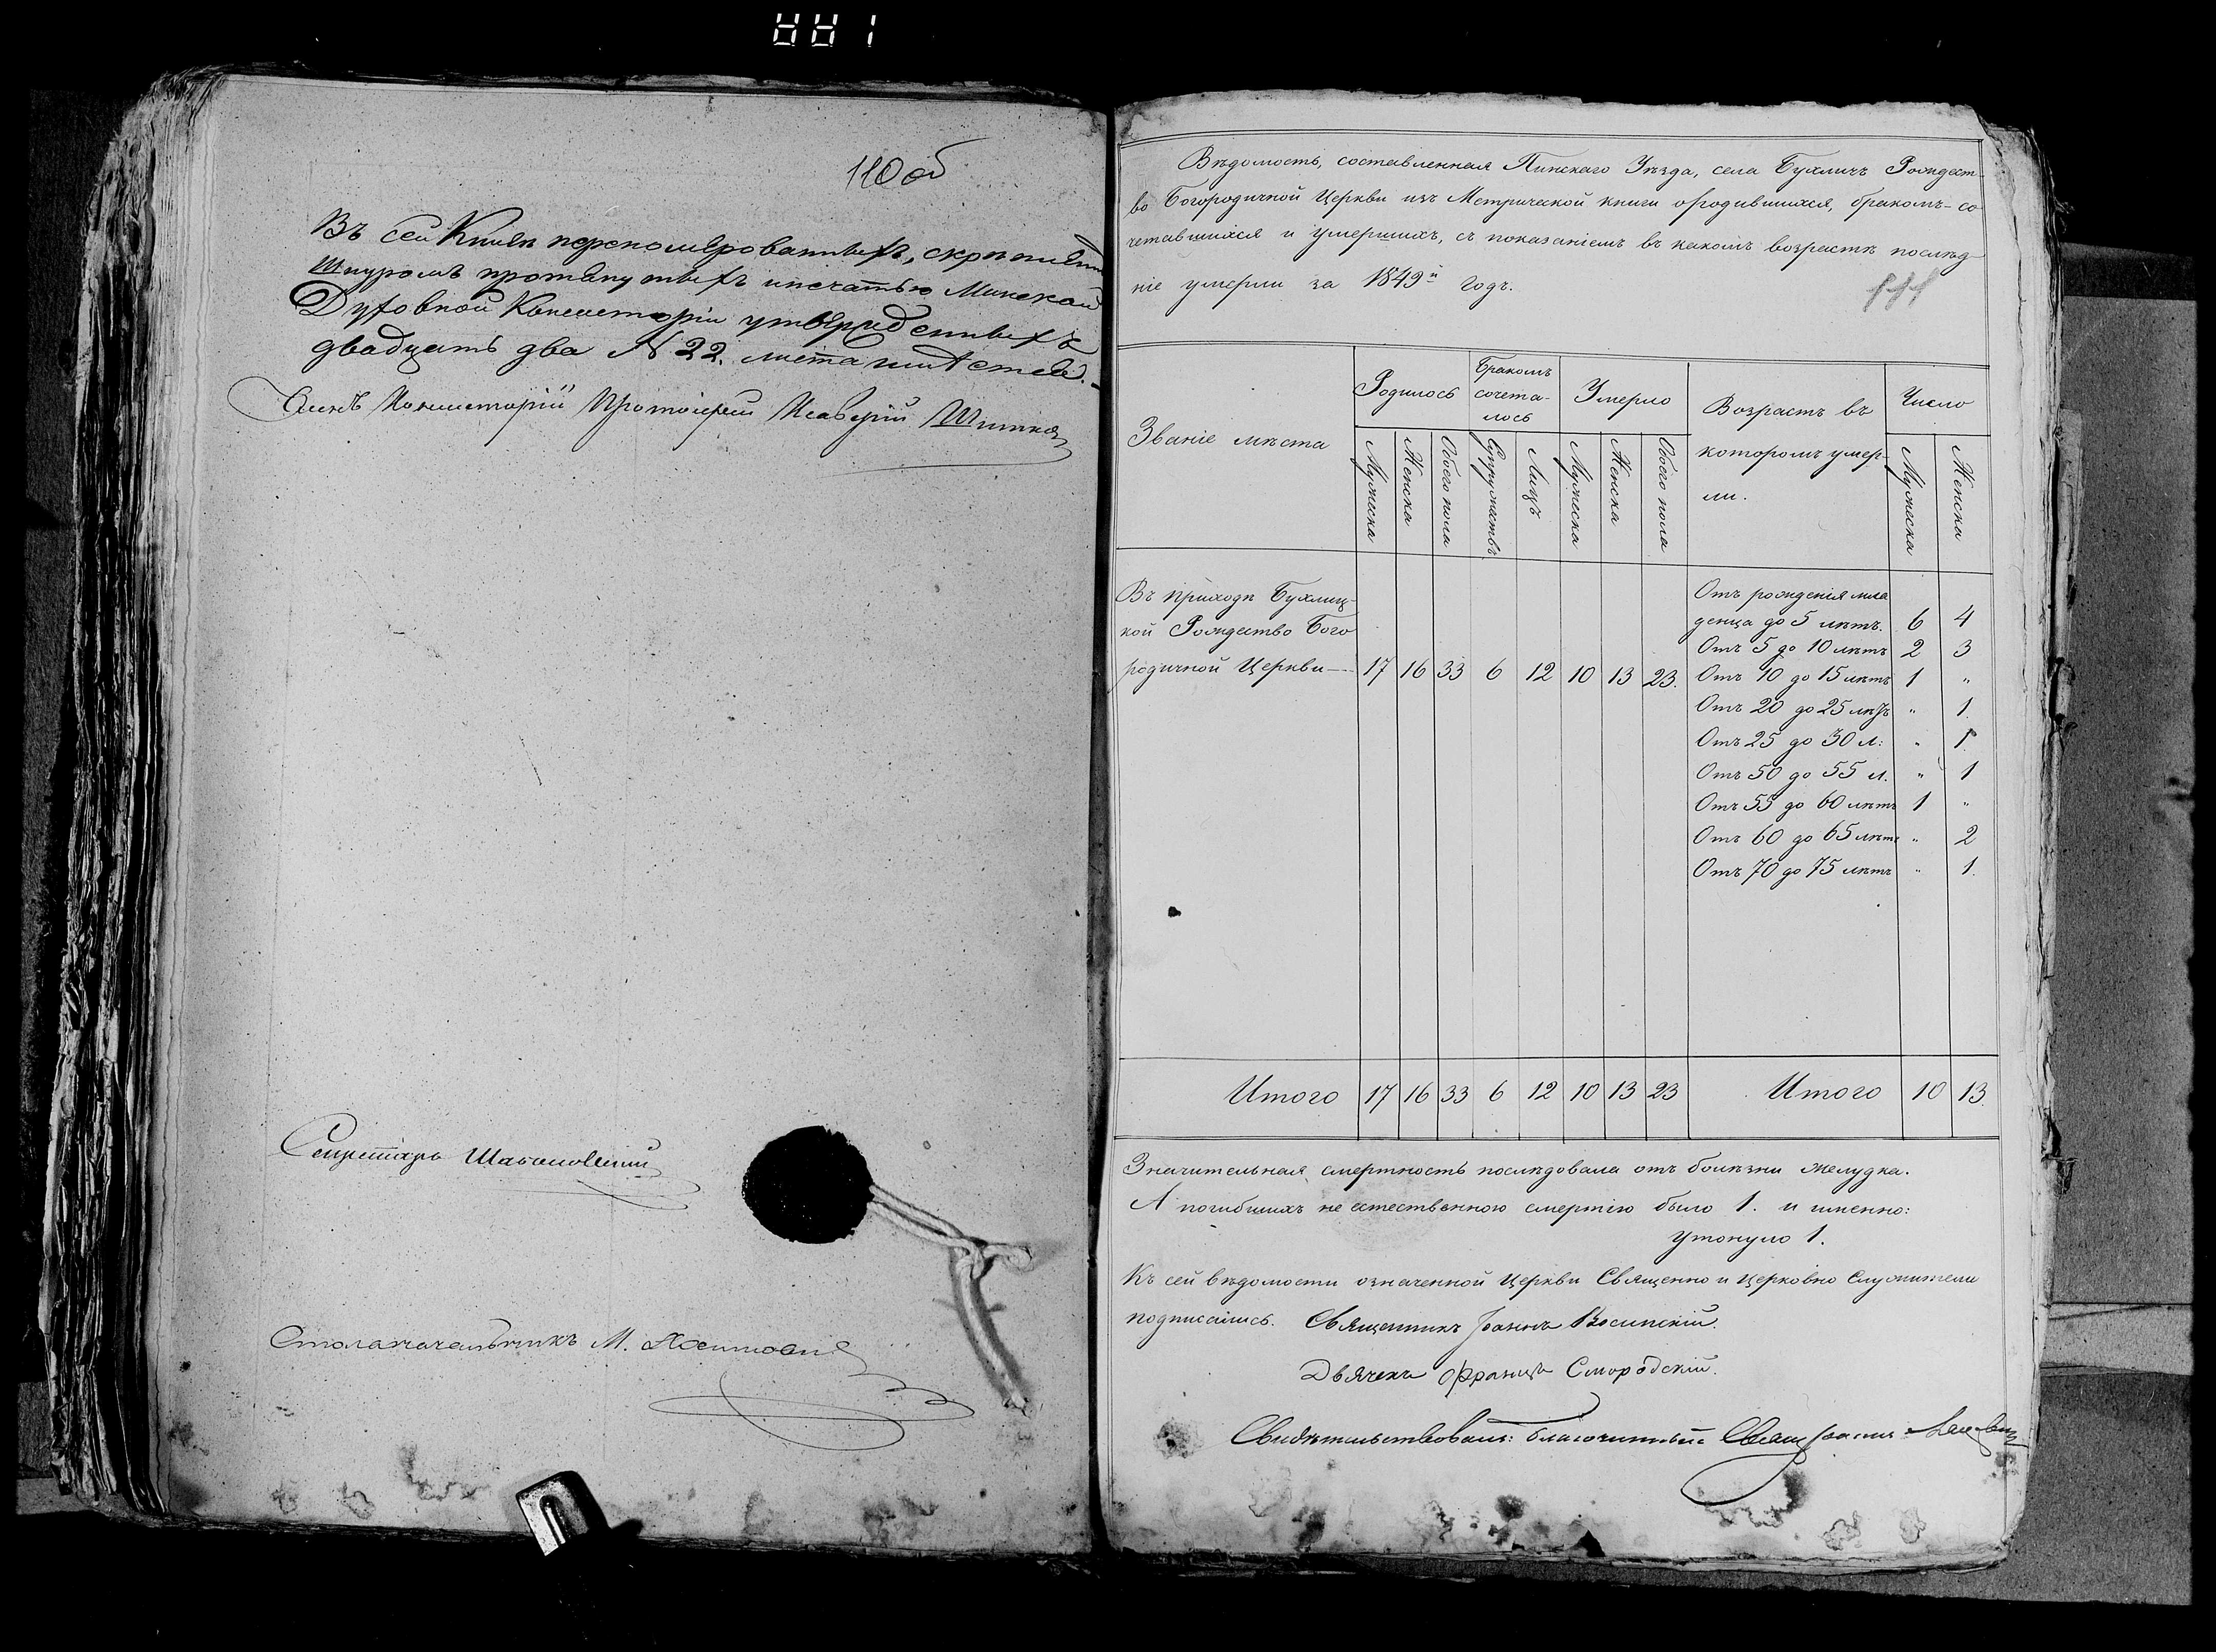 110 об
Въ сей Книгѣ переномерованныхъ, скрѣпленн
Шнуромъ протянутыхъ ипечатью Минской
Духовной Консисторіи утвержденныхъ
двадцать два № 22. листа имѣется.-
Членъ Консисторіи Протоіерей
Секретарь
Столаначальникъ М.
Вѣдомость, составленная Пинскаго Уѣзда, села Бухличъ Рождест
во Богородичной Церкви изъ Метрической книги ородившихся, бракомъ-со
четавшихся и умершихъ, съ показаніемъ въ какомъ возрастѣ послѣд
ніе умерли за 1849й годъ.
111
Званіе мѣста
Родилось
Бракомъ сочета-лось
Умерло
Возрастъ въ которомъ умер-ли.
Число
Мужеска Женска Обоего пола Супружествъ Лицъ Мужеска Женска Обоего пола Мужеска Женска
Въ приходѣ Бухлиц-
кой Рождество Бого
родичной Церкви — 17 16 33 6 12 10 13 23.
Отъ рожденія мла
денца до 5 лѣтъ. 6 4
Отъ 5 до 10 лѣтъ 2 3
Отъ 10 до 15 лѣтъ 1 "
Отъ 20 до 25 лѣтъ " 1.
Отъ 25 до 30 л: " 1.
Отъ 50 до 55 л. " 1
Отъ 55 до 60 лѣтъ 1 "
Отъ 60 до 65 лѣтъ " 2
Отъ 70 до 75 лѣтъ " 1.
Итого 17 16 33 6 12 10 13 23 Итого 10 13.
Значительная смертность послѣдовала отъ болѣзни желудка.
А погибшихъ не естественною смертію было 1. и именно:
утонуло 1.
Къ сей вѣдомости означенной Церкви Священно и Церковно Служители
подписались. Священникъ Іоаннъ
Дьячекъ Францъ Смородскій.
Свидѣтельствовалъ: благочинный Свящ